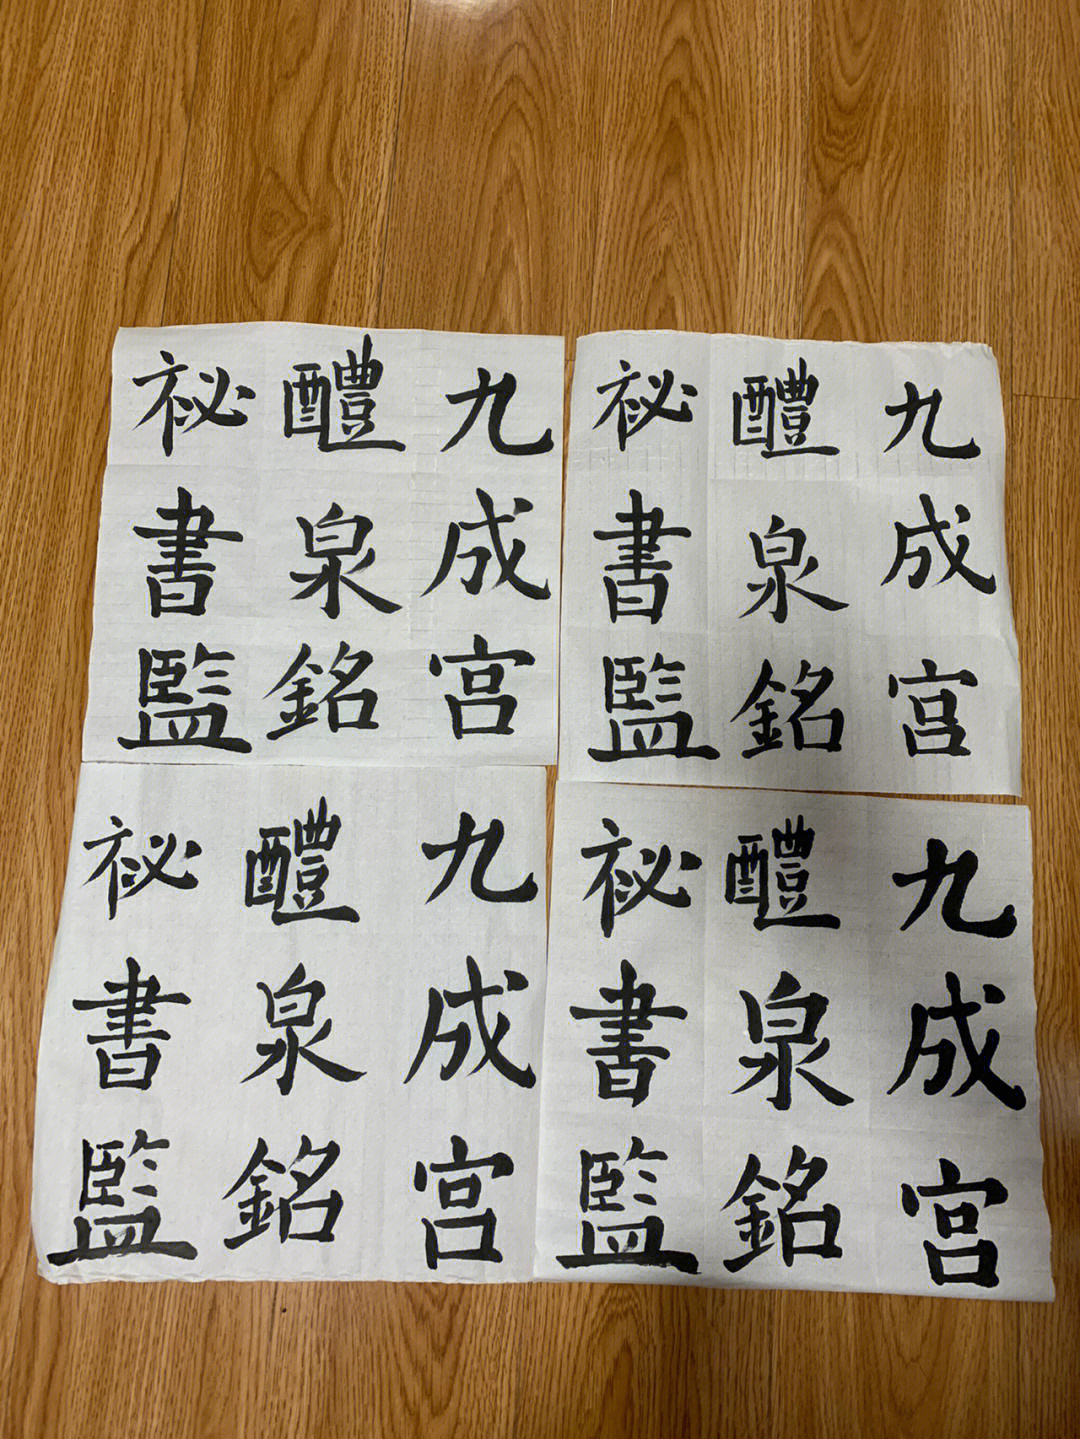 九成宮
醴泉銘
祕書監
九成宮
醴泉銘
祕書監
九成宮
醴泉銘
祕書監
九成宮
醴泉銘
祕書監